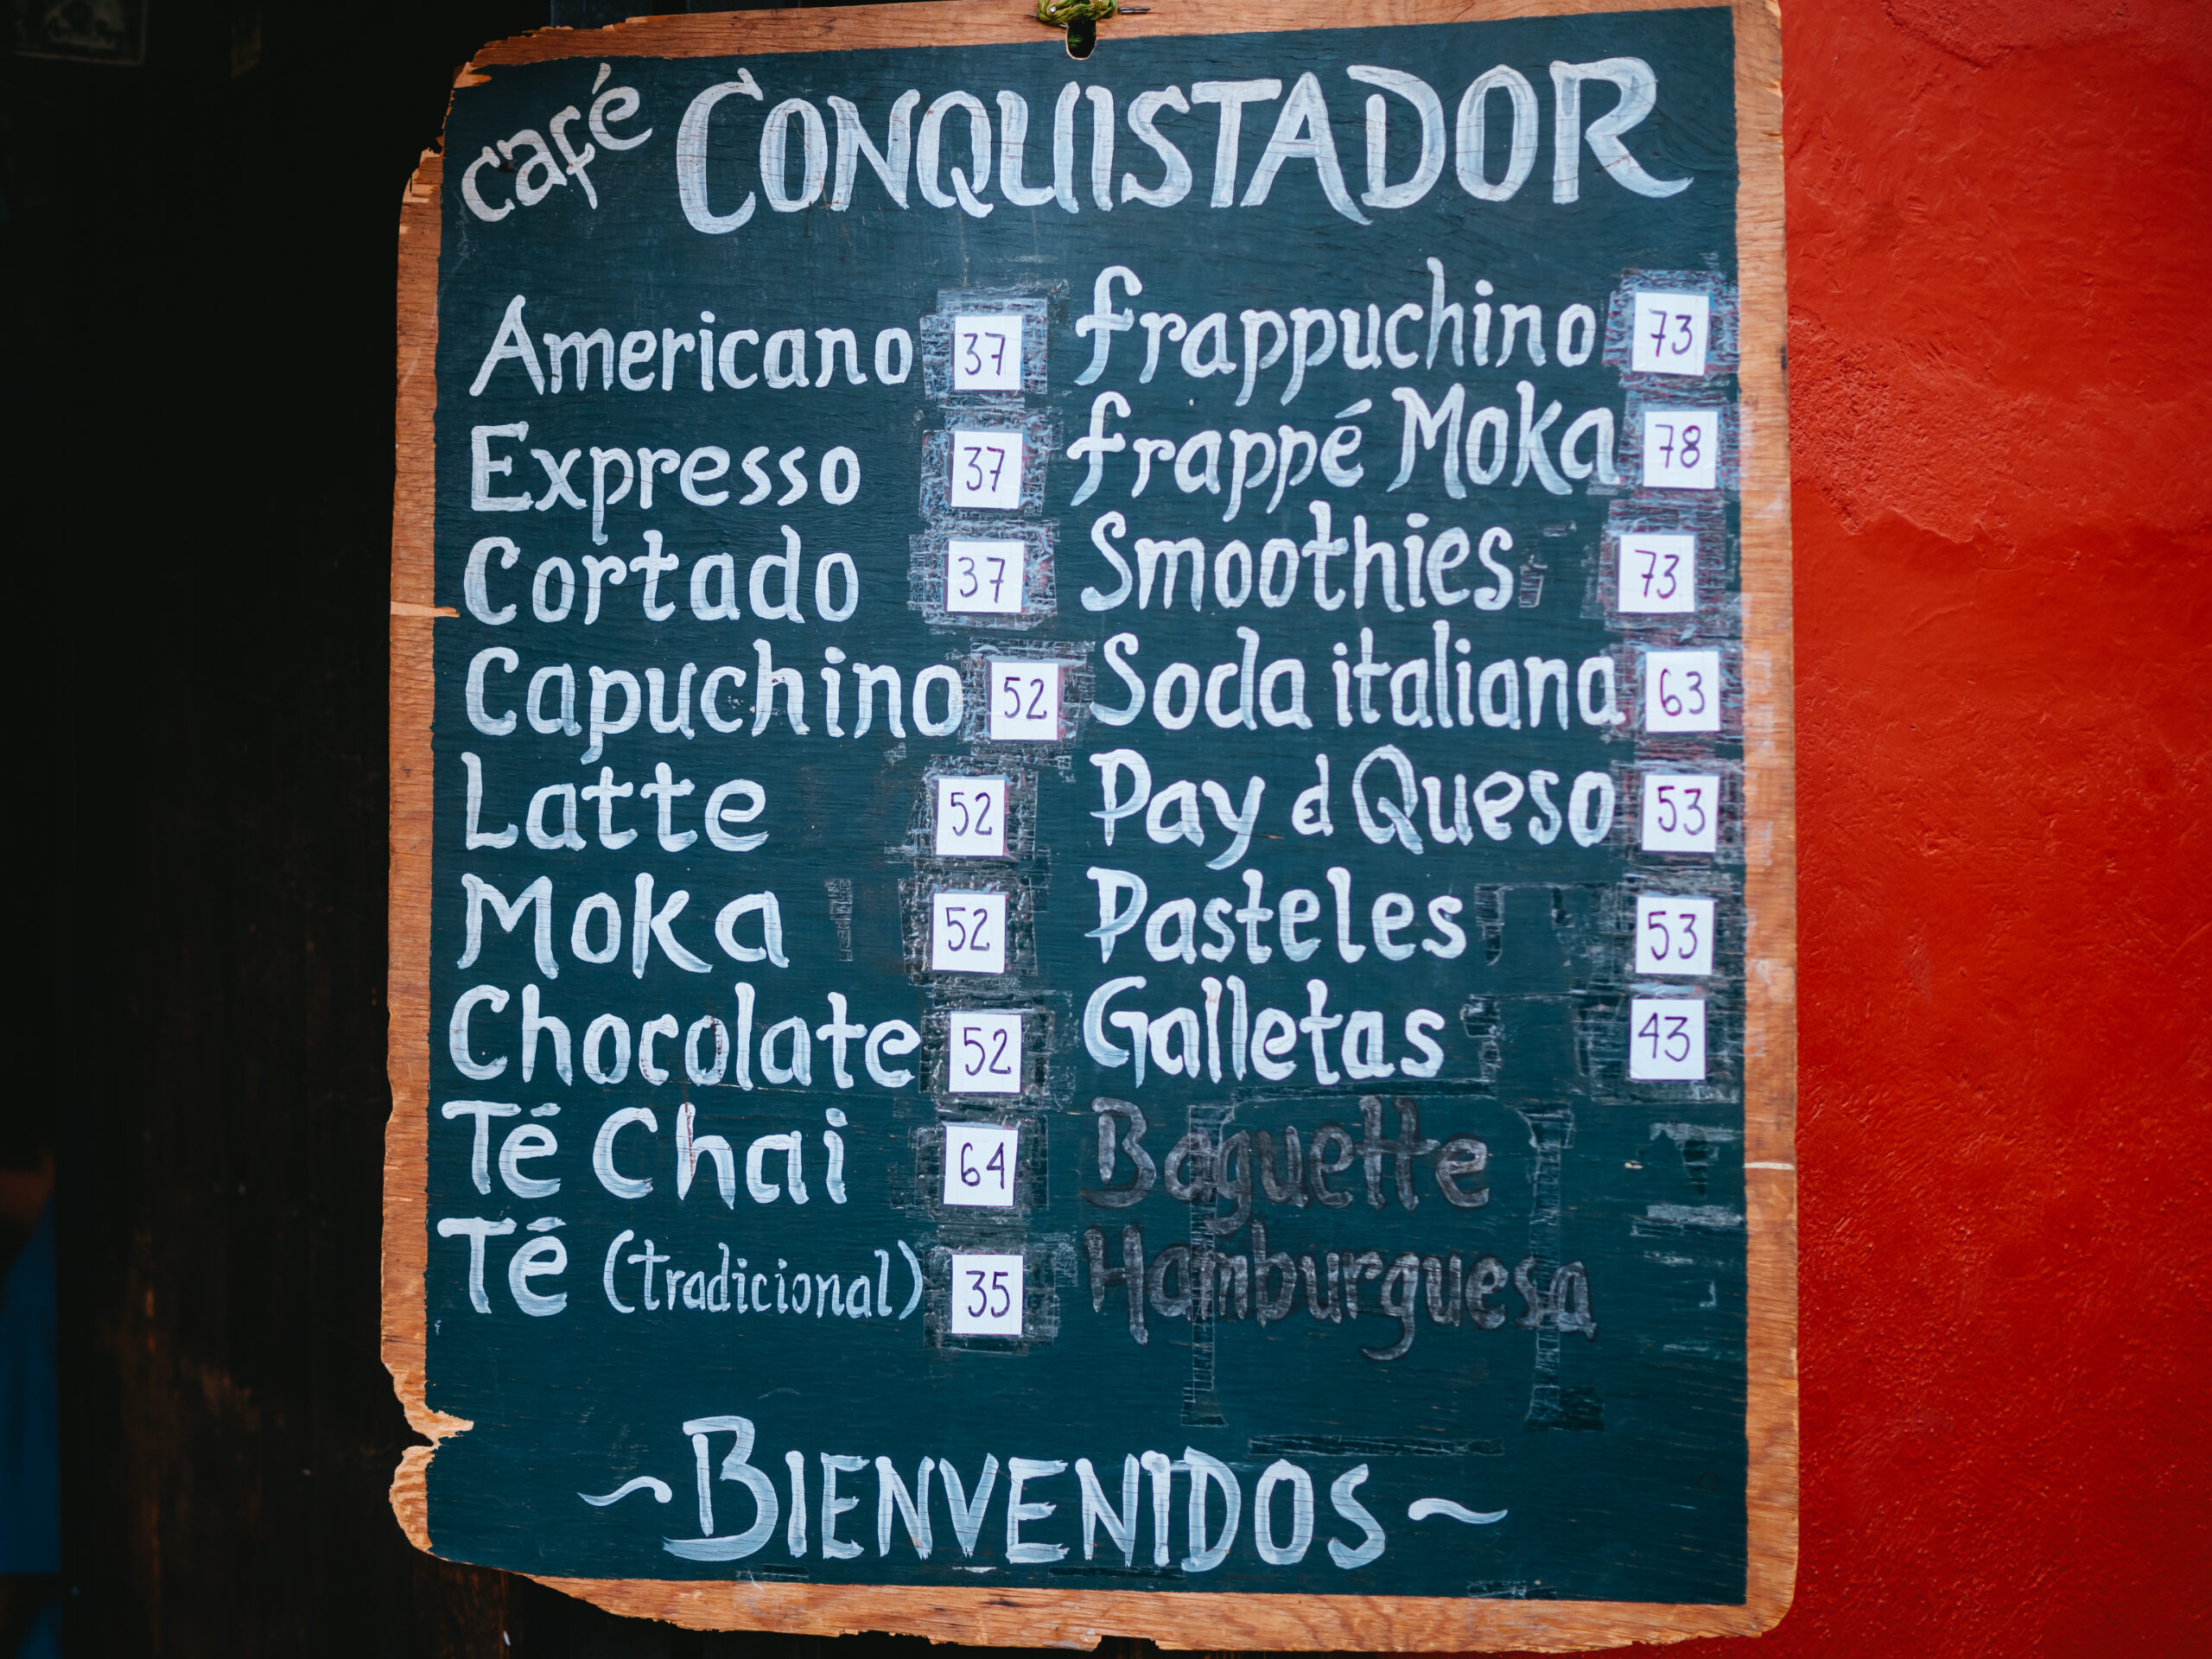 café CONQUISTADOR
Americano 37
Expresso 37
Cortado 37
Capuchino 52
Latte 52
Moka 52
Chocolate 52
Té Chai 64
Té (tradicional) 35
frappuchino 73
frappé Moka 78
Smoothies 73
Soda italiana 63
Pay d Queso 53
Pasteles 53
Galletas 43
Baguette
Hamburguesa
~BIENVENIDOS~